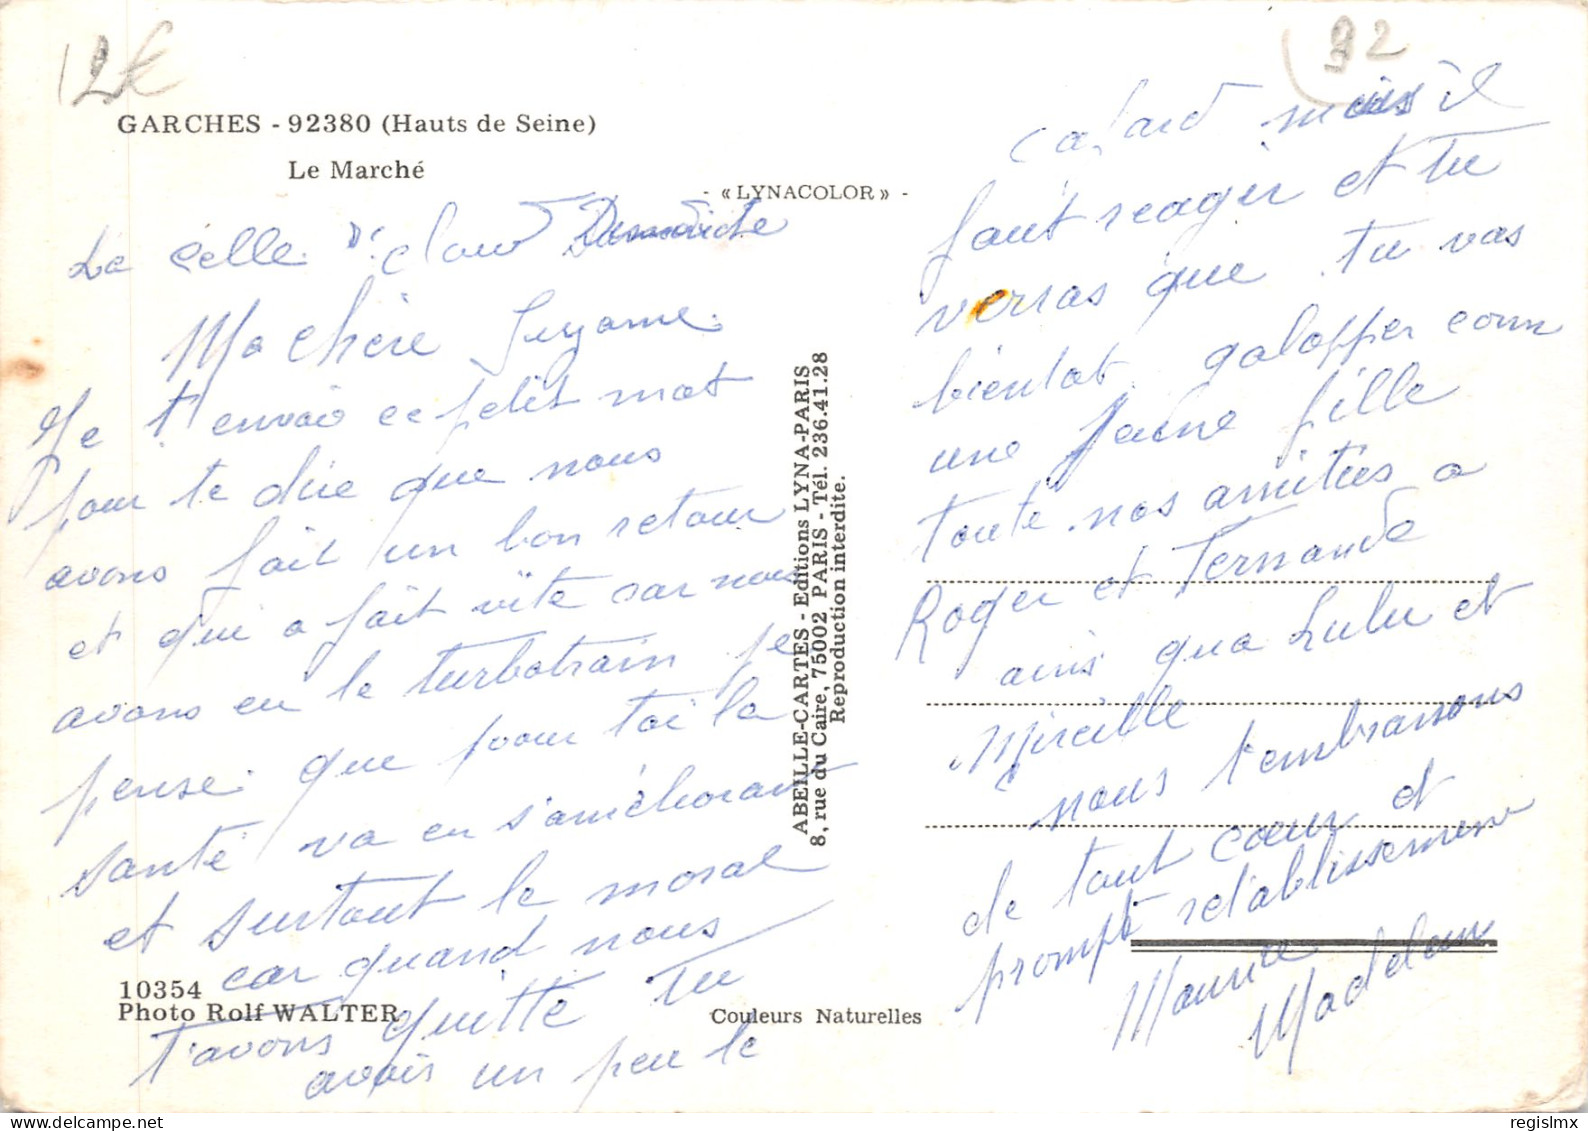 12€
92
GARCHES - 92380 (Hauts de Seine)
Le Marché
- « LYNACOLOR » -
La Celle St cloud Dimanche
Ma chère Suzanne.
Je t'envoie ce petit mot
pour te dire que nous
avons fait un bon retour
et qui a fait vite car nous
avons eu le turbotrain je
pense que pour toi la
santé va en s'améliorant
et surtout le moral
car quand nous
t'avons quitté tu
avais un peu le
cafard mais il
faut reagir et tu
verras que tu vas
bientot galopper comm
une jeune fille
toute nos amitiés a
Roger et Fernande
ainsi qua Lulu et
Mireille
nous t'embrassons
de tout cœur et
prompt rétablissement
Maurice
Madeleine
ABEILLE-CARTES - Editions LYNA-PARIS
8, rue du Caire, 75002 PARIS - Tél. 236.41.28
Reproduction interdite.
10354
Photo Rolf WALTER
Couleurs Naturelles
regislmx